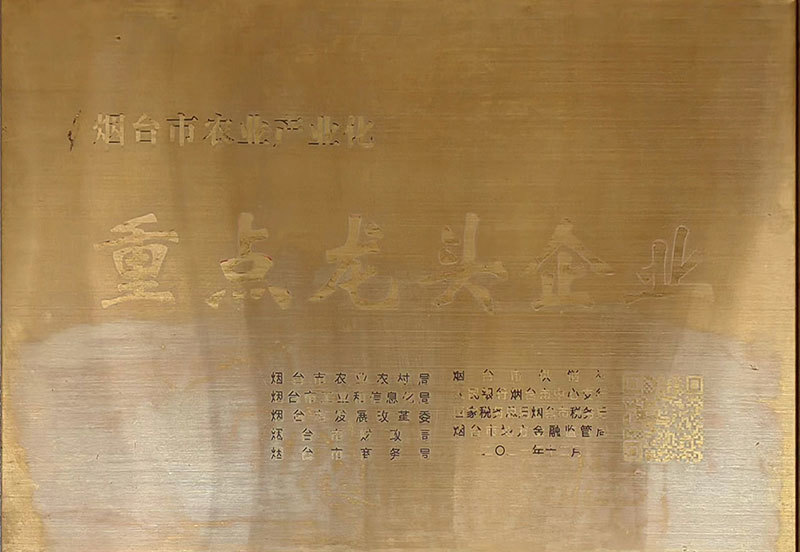 烟台市农业产业化
重点龙头企业
烟台市农业农村局
烟台市工业和信息化局
烟台市发展改革委
烟台市财政局
烟台市商务局
烟台市
人民银行烟台市中心支行
国家税务总局烟台市税务局
烟台市地方金融监管局
年十月